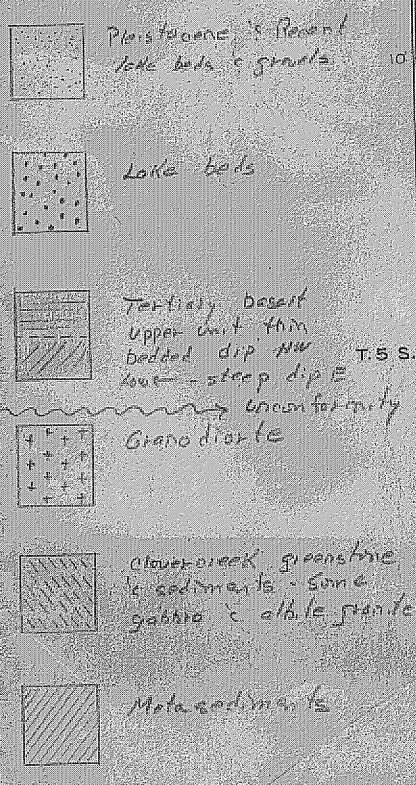 Pleistocene, & Recent
lake beds & gravels
10
Lake beds
Tertiary basalt
upper unit thin
bedded dip NW
T. 5 S.
lower - steep dip E
unconformity
Granodiorite
Clovercreek greenstone
& sediments - some
gabbro & albite granite
Metasediments